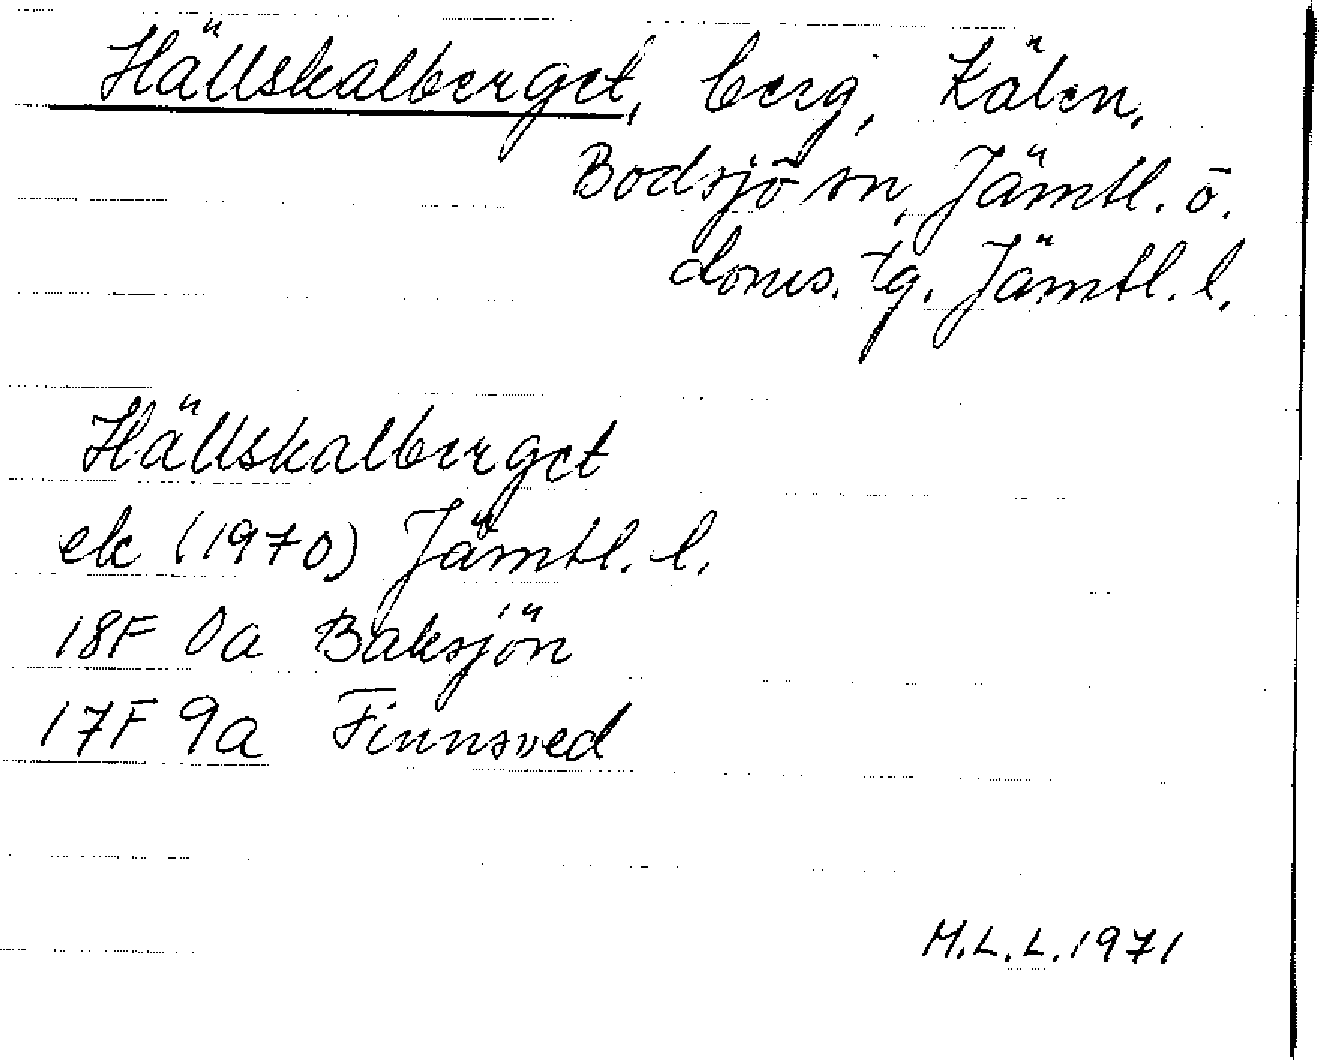 Hällskalberget, berg, Kälen,
Bodsjö sn, Jämtl. ö.
doms. tg. Jämtl. l.
Hällskalberget
ek (1970) Jämtl. l.
18F 0a Baksjön
17F 9a Finnsved
M.L.L. 1971